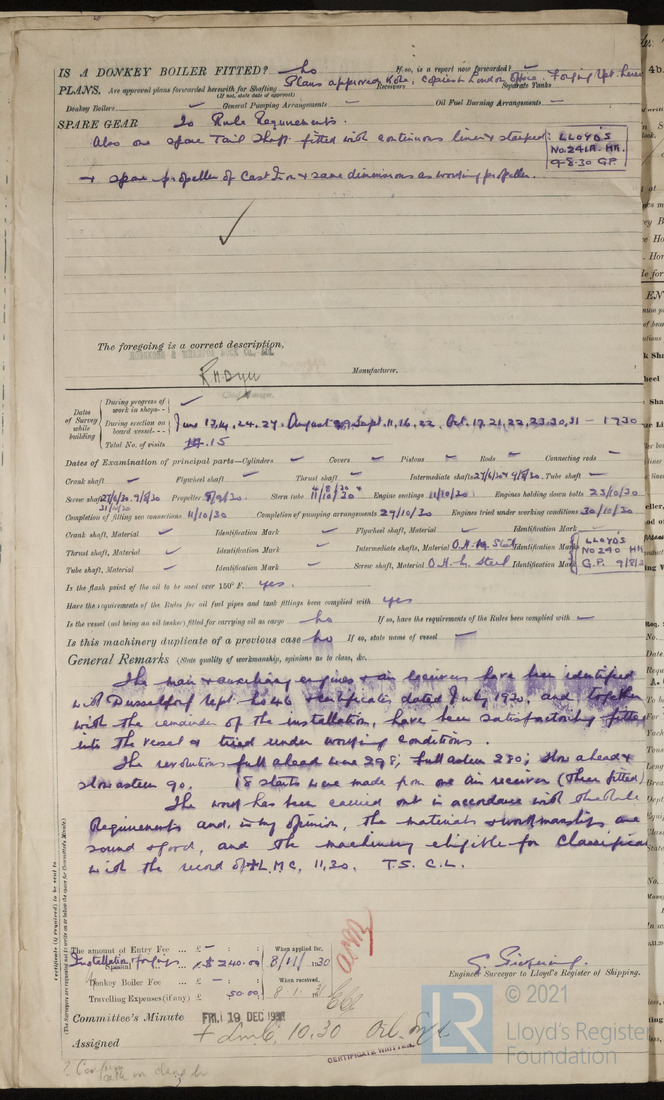 IS A DONKEY BOILER FITTED? No If so, is a report now forwarded? -
PLANS. Are approved plans forwarded herewith for Shafting Plans approved Kobe, Copies London Office. Forging Rpt. here Receivers Separate Tanks
(If not, state date of approval)
Donkey Boilers - General Pumping Arrangements - Oil Fuel Burning Arrangements -
SPARE GEAR To Rule Requirements.
Also one spare Tail Shaft fitted with continuous liner & stamped: LLOYD'S
No. 241A. HK.
9-8-30 G.P.
+ spare propeller of Cast Iron & same dimensions as working propeller.
The foregoing is a correct description,
HONGKONG & WHAMPOA DOCK CO., LTD.
Manufacturer.
Chief Manager.
Dates of Survey while building
During progress of work in shops - -
During erection on board vessel - - - June 12, 14, 24, 27, August 9, Sept. 11, 16, 22, Oct. 17, 21, 22, 23, 30, 31 - 1930
Total No. of visits 15
Dates of Examination of principal parts—Cylinders - Covers - Pistons - Rods - Connecting rods -
Crank shaft - Flywheel shaft - Thrust shaft - Intermediate shafts 27/6/30 & 9/8/30 Tube shaft -
Screw shaft 27/6/30. 9/8/30 Propeller 8/9/30. Stern tube 11/10/30 Engine seatings 11/10/30 Engines holding down bolts 23/10/30
Completion of fitting sea connections 11/10/30 Completion of pumping arrangements 29/10/30 Engines tried under working conditions 30/10/30
Crank shaft, Material - Identification Mark - Flywheel shaft, Material - Identification Mark -
Thrust shaft, Material - Identification Mark - Intermediate shafts, Material O.H. Steel Identification Marks LLOYD'S
No 240 HK
G.P. 9/8/3
Tube shaft, Material - Identification Mark - Screw shaft, Material O.H. Steel Identification Mark
Is the flash point of the oil to be used over 150° F. yes.
Have the requirements of the Rules for oil fuel pipes and tank fittings been complied with yes
Is the vessel (not being an oil tanker) fitted for carrying oil as cargo no If so, have the requirements of the Rules been complied with -
Is this machinery duplicate of a previous case no If so, state name of vessel -
General Remarks (State quality of workmanship, opinions as to class, &c.
The main & auxiliary engines & air receivers have been identified
with Dusseldorf Rpt. No 46 & certificate, dated July 1930, and together
with the remainder of the installation, have been satisfactorily fitted
into the vessel & tried under working conditions.
The revolutions full ahead were 298; full astern 280; slow ahead &
slow astern 90. 18 starts were made from one air receiver (three fitted)
The work has been carried out in accordance with the Rule
Requirements and, in my opinion, the materials & workmanship are
sound & good, and the machinery eligible for Classification
with the record of +L.M.C. 11,30. T.S. C.L.
Certificate (if required) to be sent to
(The Surveyors are requested not to write on or below the space for Committee's Minute.)
The amount of Entry Fee ... £ - : : When applied for,
Installation, forgings
Special ... $ 240.00 8/11/1930
Donkey Boiler Fee ... £ - : : When received,
Travelling Expenses (if any) £ 50.00 8.1.31
Engineer Surveyor to Lloyd's Register of Shipping.
Committee's Minute FRI. 19 DEC 1930
Assigned + LMC 10.30 Oil Eng
CERTIFICATE WRITTEN.
© 2021
LR
Lloyd's Register
Foundation